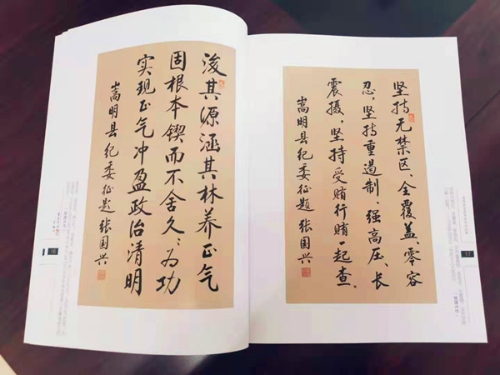 浚其源涵其林养正气
固根本锲而不舍久〻为功
实现正气冲盈政治清明
嵩明县纪委征题张国兴
坚持无禁区、全覆盖、零容
忍，坚持重遏制、强高压、长
震摄，坚持受贿行贿一起查。
嵩明县纪委征题张国兴